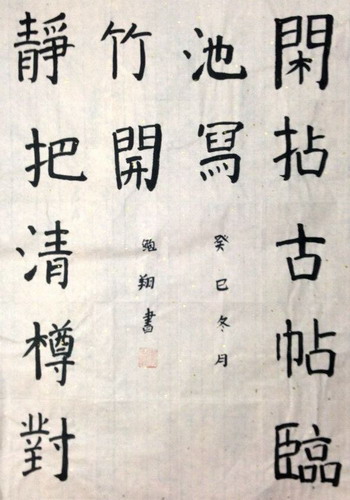 閑拈古帖臨
池寫
癸巳冬月
靜把清樽對
竹開
翔書